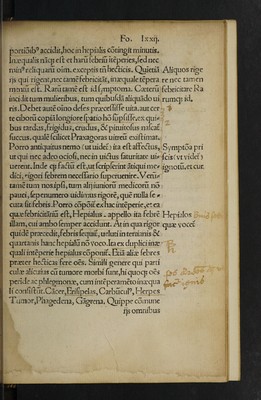 Fo. lxxij.
portiõibꝰ accidit, hoc in hepialis cõtingit minutis.
Inæqualis nãq; est et harũ febriũ itẽperies, sed nec
minꝰ reliquarũ oĩm, exceptis tñ hecticis. Quietiã
ris qui rigent, nec tamẽ febricitãt, inæquale tẽpera
mentũ est. Rarũ tamẽ est id symptoma. Cæterũ
incidit tum mulieribus, tum quibusdã aliquãdo ui
ris. Debet autẽ oĩno desẽs præcessisse uita, aut cer
te ciborũ copiã longiore spatio hõ sũpsisse, ex qui-
bus tardus, frigidus, crudus, & pituitosus nascat̃
succus, qualẽ scilicet Praxagoras uitreũ existimat.
Porro antiquitus nemo (ut uidet̃) ita est affectus,
ut qui nec adeo ociosi, nec in uictus saturitate ui-
uerent. Inde q; factũ est, ut scripserint antiqui me-
dici, rigori febrem necessario superuenire. Veri-
tamẽ tum nos ipsi, tum alij iuniorũ medicorũ nõ
pauci, sepenumero uidimus rigorẽ, quẽ nulla se-
cuta sit febris. Porro cõponit̃ ex hac itẽperie, et ea
quæ febricitãtiũ est, Hepialus. appello ita febrẽ
illam, cui ambo semper accidunt. At in qua rigor
quidẽ præcedit, febris sequit̃, ueluti in tertianis &
quartanis hanc hepialũ nõ uoco. Ita ex duplici inæ
quali itẽperie hepialus cõponit̃. Exũ aliæ febres
præter hecticas fere oẽs. Simili genere qui parti
culæ alicuius cũ tumore morbi sunt, hi quoq; oẽs
peride ac phlegmonæ, cum intẽperamẽto inæqua
li consistũt. Cãcer, Erisipelas, Carbũculꝰ, Herpes
Tumor, Phagedena, Gãgrena. Quippe cõmune
ijs omnibus
Aliquos rige
re nec tamen
febricitare Ra
rumq; id.
Symptõa pri
scis (vt videt̃)
ignotũ, et cur.
Hepialos
quæ vocet̃